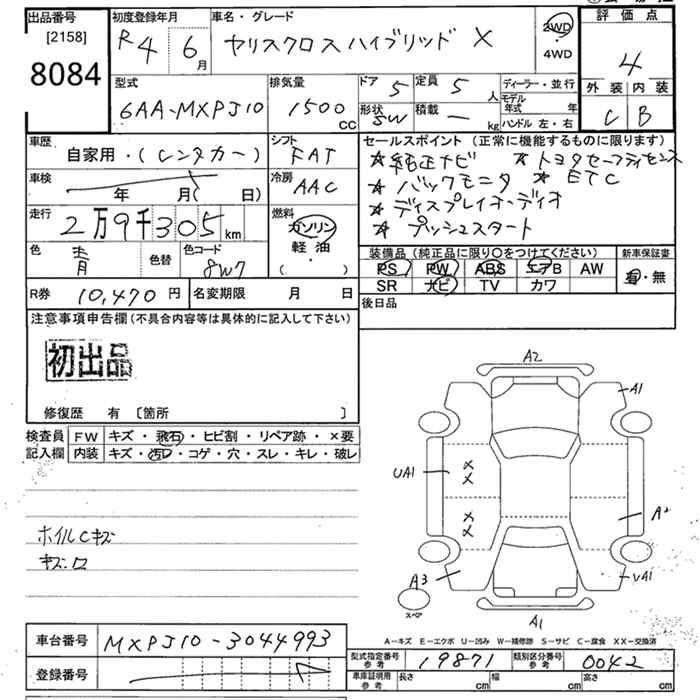 出品番号
[2158]
8084
初度登録年月
R4 6月
車名・グレード
ヤリスクロスハイブリッド X
2WD
・
4WD
評価点
4
外装 内装
C B
型式
6AA-MXPJ10
排気量
1500 CC
ドア 5
定員 5 人
形状 SW
積載 — kg
ディーラー・並行
モデル年式 年
ハンドル 左・右
車歴
自家用・(レンタカー)
シフト
FAT
車検
年 月( 日)
冷房
AAC
走行
2万9千305 km
燃料
ガソリン
軽・油
( )
色 青
色替
色コード 8W7
R券 10,470 円
名変期限 月 日
セールスポイント (正常に機能するものに限ります)
★純正ナビ ★トヨタセーフティセンス
★バックモニタ ★ETC
★ディスプレイオーディオ
★プッシュスタート
装備品 (純正品に限り〇をつけてください)
新車保証書
PS PW ABS エアB AW
SR ナビ TV カワ
有・無
後日品
注意事項申告欄 (不具合内容等は具体的に記入して下さい)
初出品
修復歴 有 〔箇所 〕
検査員記入欄
FW キズ・飛石・ヒビ割・リペア跡・×要
内装 キズ・汚れ・コゲ・穴・スレ・キレ・破レ
ホイルCキズ
キズ.ワ
A2
A1
UA1
A2
A3
UA1
A1
スペア
A－キズ E－エクボ U－凹み W－補修跡 S－サビ C－腐食 XX－交換済
車台番号 MXPJ10-3044993
登録番号
型式指定番号 参考 19871
類別区分番号 参考 0042
車庫証明用 参考 長さ cm 幅 cm 高さ cm